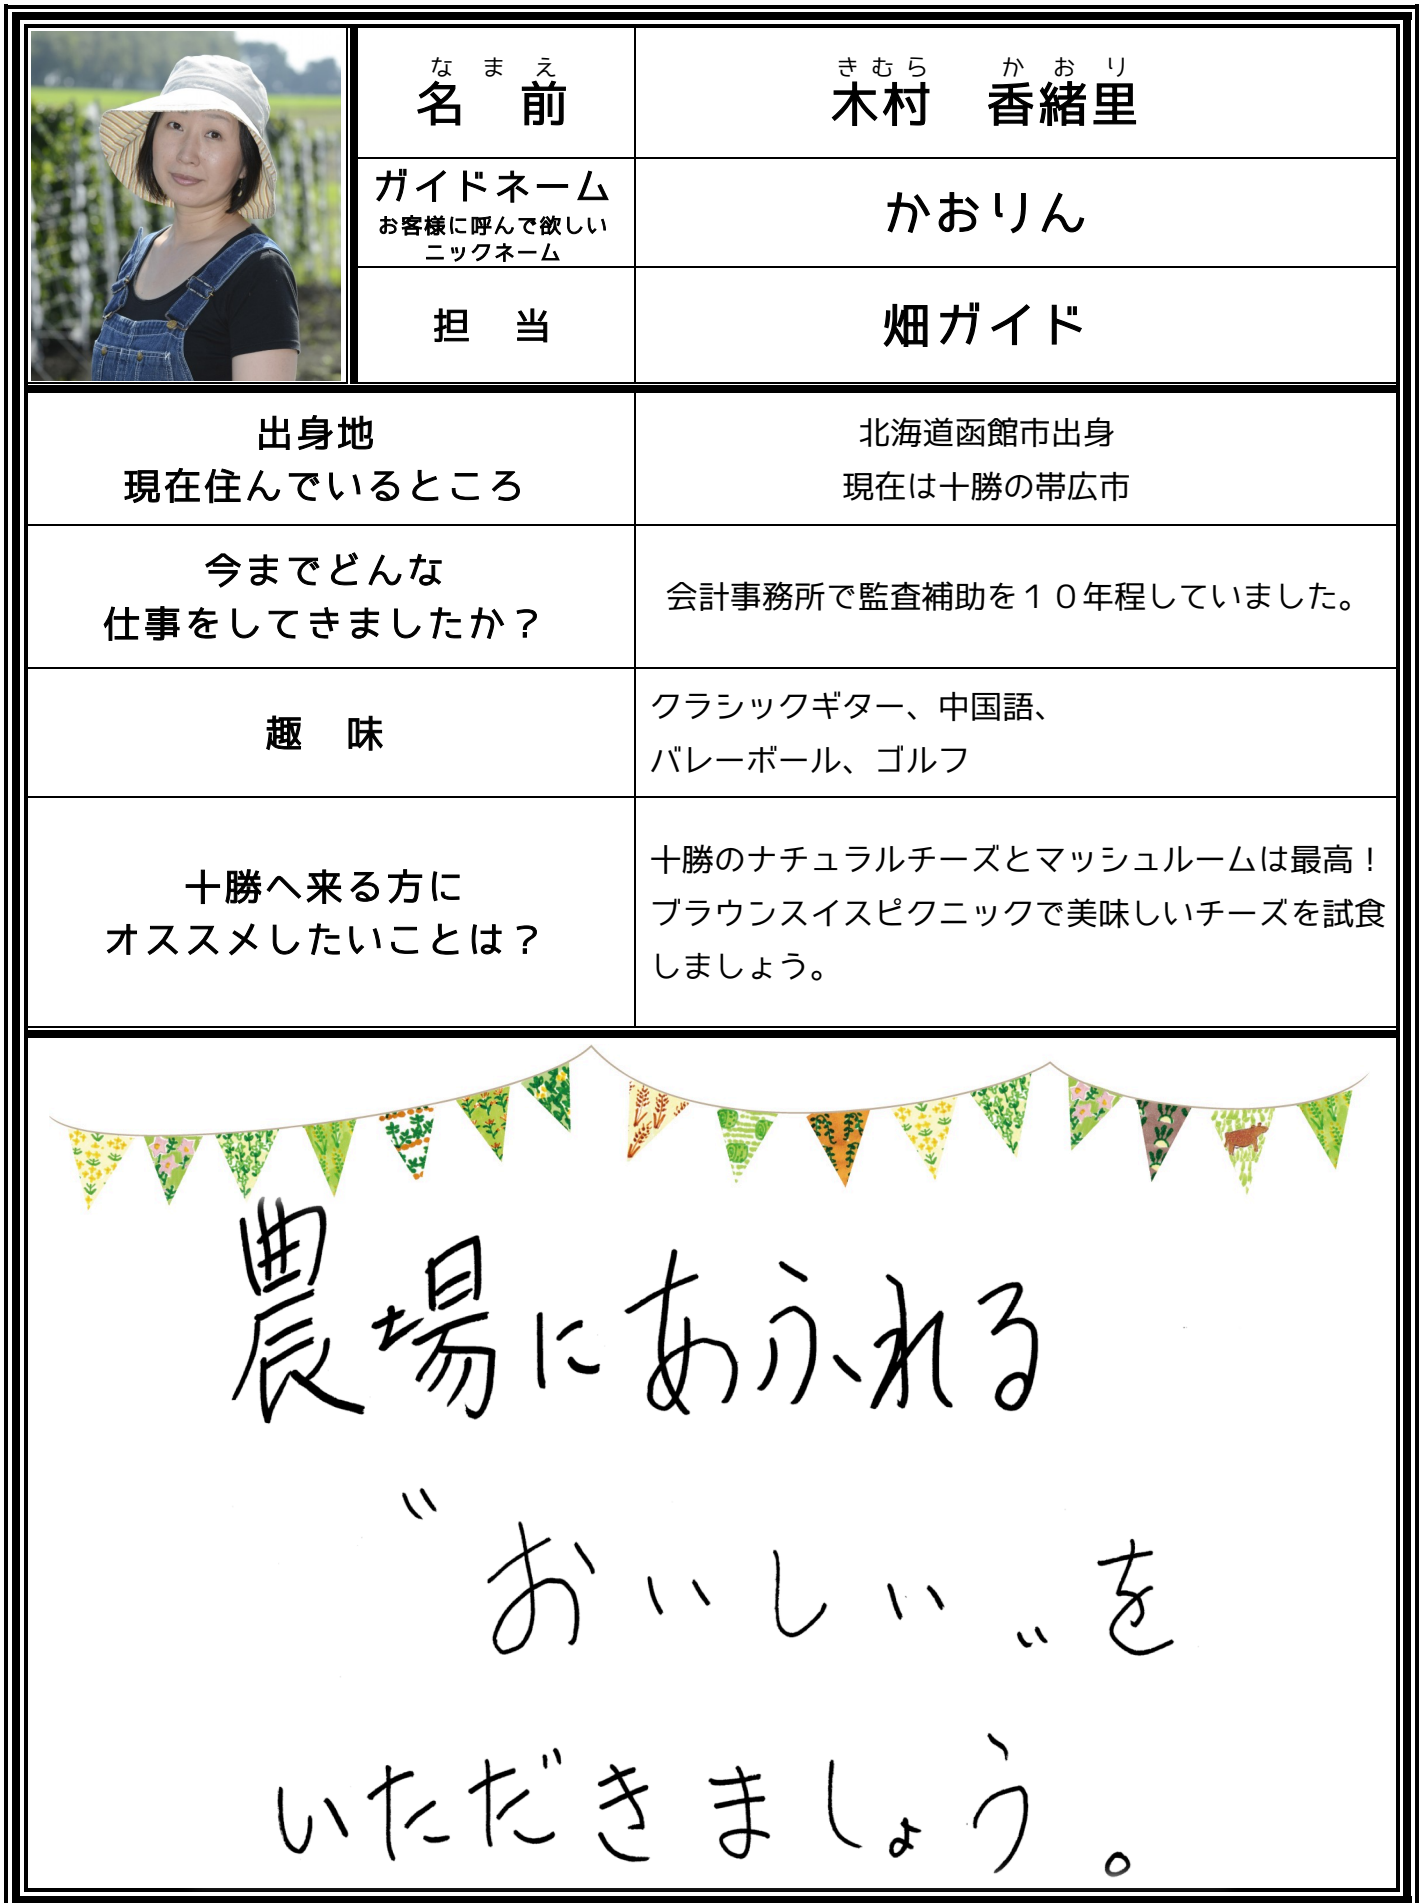 なまえ
名　前
きむら　かおり
木村　香緒里
ガイドネーム
お客様に呼んで欲しい
ニックネーム
かおりん
担　当
畑ガイド
出身地
現在住んでいるところ
北海道函館市出身
現在は十勝の帯広市
今までどんな
仕事をしてきましたか？
会計事務所で監査補助を１０年程していました。
趣　味
クラシックギター、中国語、
バレーボール、ゴルフ
十勝へ来る方に
オススメしたいことは？
十勝のナチュラルチーズとマッシュルームは最高！
ブラウンスイスピクニックで美味しいチーズを試食
しましょう。
農場にあふれる
〝おいしい〟を
いただきましょう。